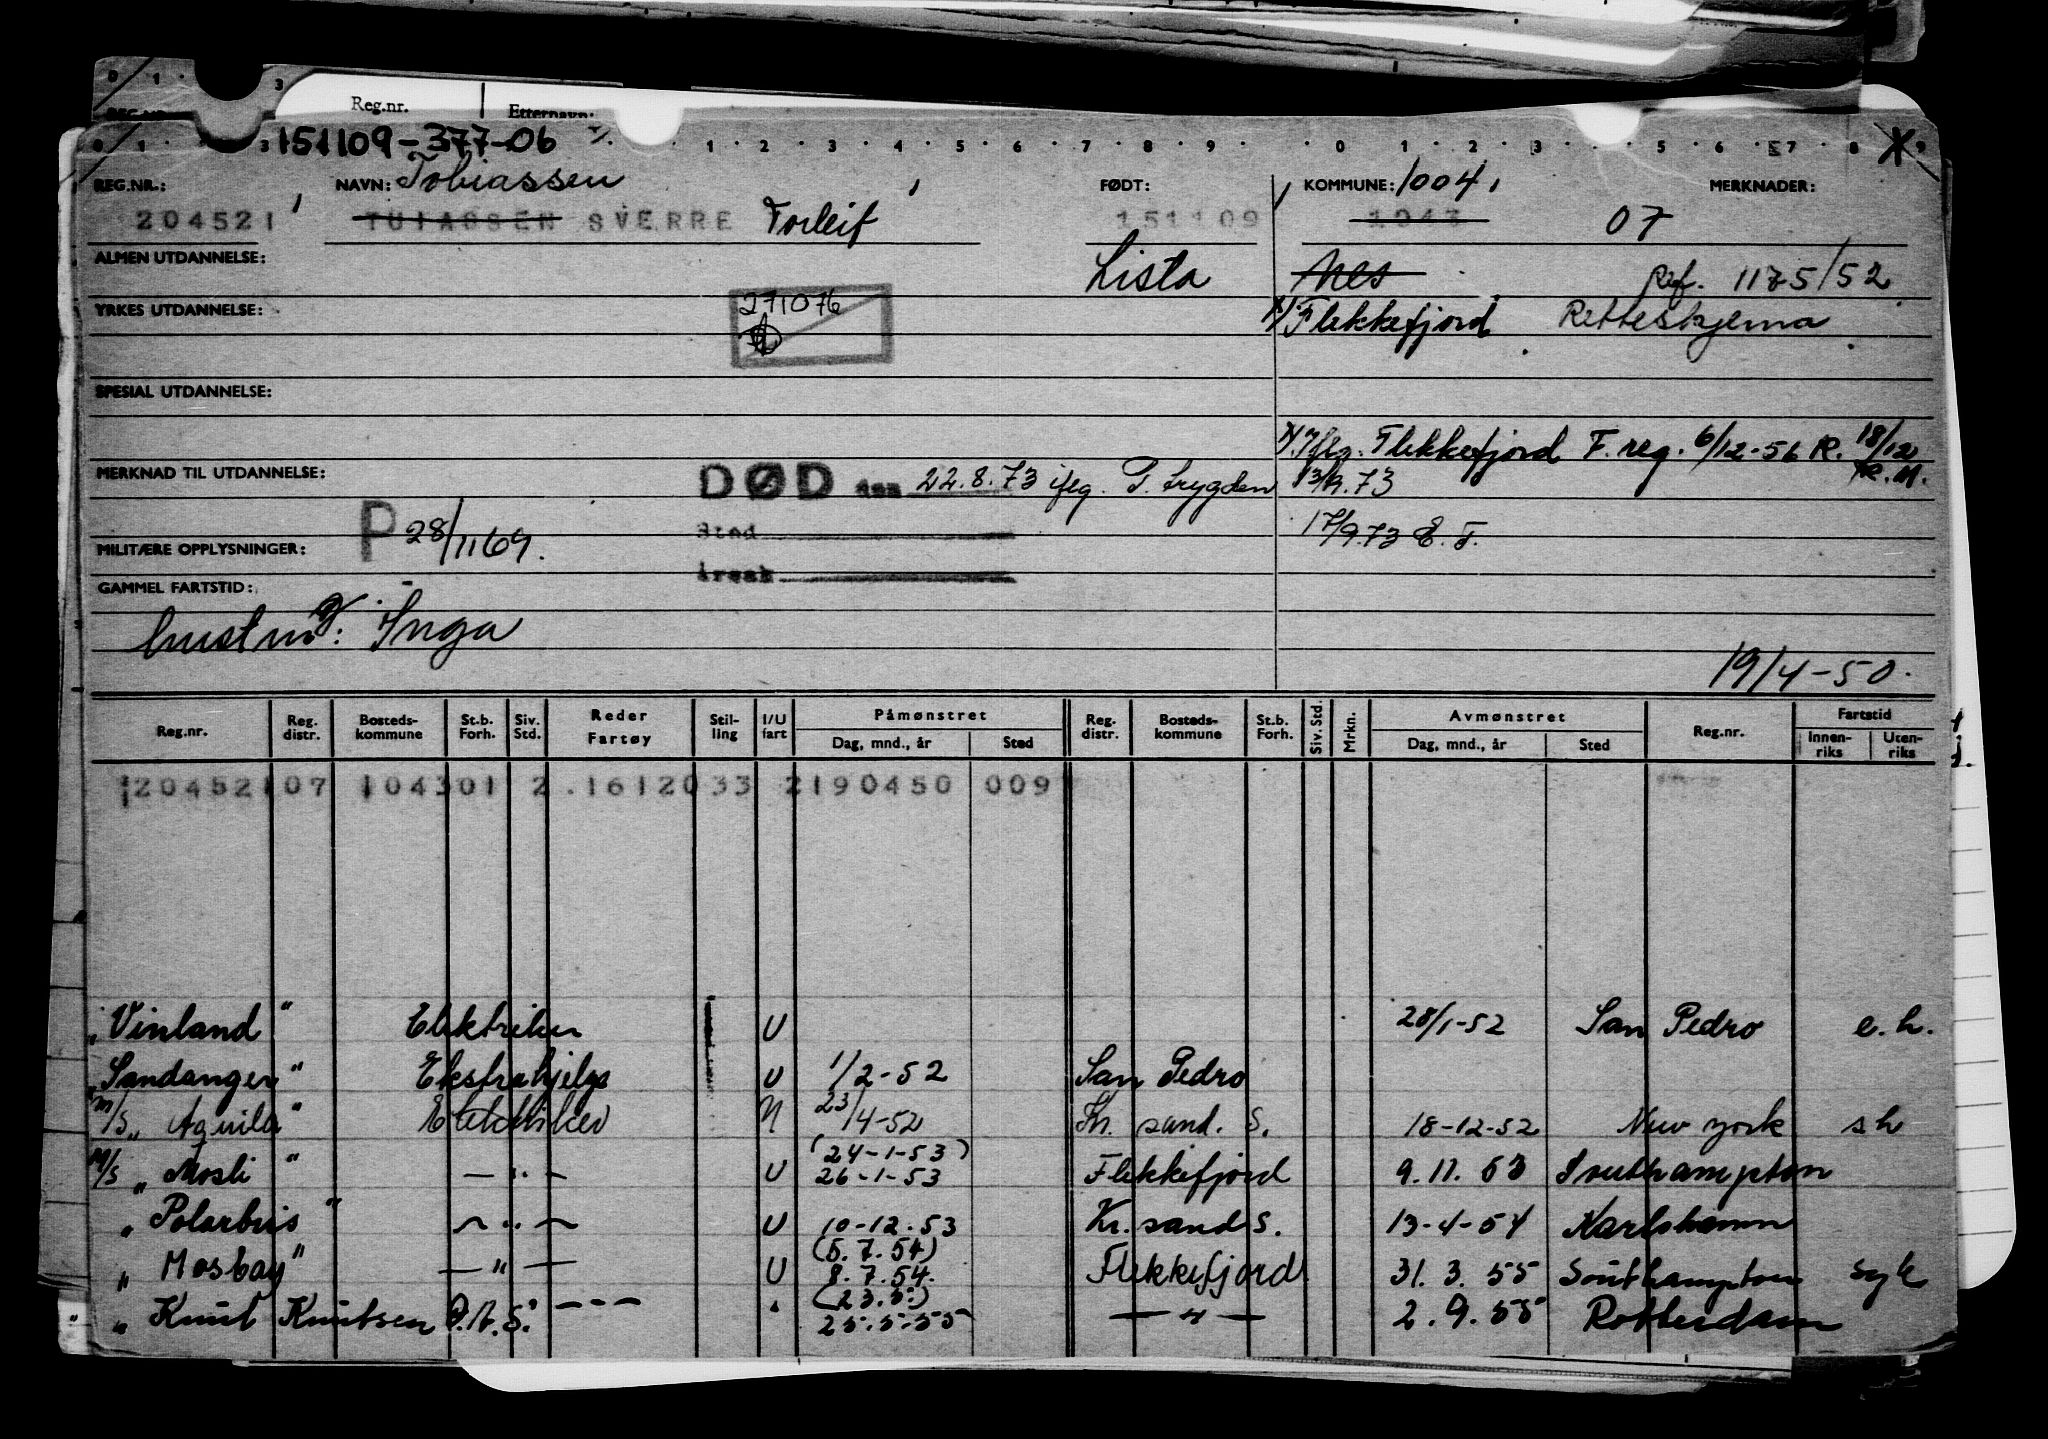 0 1 . 3
REG.NR.
Reg.nr. Etternavn:
151109-377-06
0 1 3 . 1 . 2 . 3 . 4 . 5 . 6 . 7 . 8 . 9 . . 0 . 1 . 2 . 3 . . . 5 . 6 . 7 . 8 9
REG.NR.: NAVN: Tobiassen FØDT: KOMMUNE: 1004 MERKNADER:
204521 TOIASSEN SVERRE Torleif 151109 1043 07
ALMEN UTDANNELSE: Lista Nes Ref. 1175/52
YRKES UTDANNELSE: 271076 x/ Flekkefjord Retteskjema
SPESIAL UTDANNELSE:
x/ Iflg. Flekkefjord F. reg. 6/12-56 R. 18/12
MERKNAD TIL UTDANNELSE: DØD den 22.8.73 iflg. P. trygden 13/9.73 R.M.
MILITÆRE OPPLYSNINGER: P 28/1169. Sted 17/9.73 E.T.
GAMMEL FARTSTID: Årsak
hustru: Inga
19/4-50.
Reg.nr. Reg. distr. Bosteds- kommune St.b. Forh. Siv. Std. Reder Fartøy Stil- ling I/U fart Påmønstret Dag, mnd., år Sted Reg. distr. Bosteds- kommune St.b. Forh. Siv. Std. Mrkn. Avmønstret Dag, mnd., år Sted Reg.nr. Fartstid Innen- riks Uten- riks
204521 07 104301 2 .1612033 2190450 009
"Vinland" Elektriker U 28/1-52 San Pedro e.h.
"Sandanger" Ekstrahjelp U 1/2-52 San Pedro
M/S "Aquila" Elektriker N 23/4-52 Kr. sand. S. 18-12-52 New york sh
M/S "Mosli" — " — U (24-1-53) 26-1-53 Flekkefjord 9.11.53 Southampton
"Polarbris" — " — U 10-12.53 Kr. sand S. 13-4-54 Karlshamn
"Mosbay" — " — U (5.7.54) 8.7.54. Flekkefjord 31.3.55 Southampton syk
"Knut Knutsen O.A.S." — — — " (23.5.) 25.5.55 — " — 2.9.55 Rotterdam